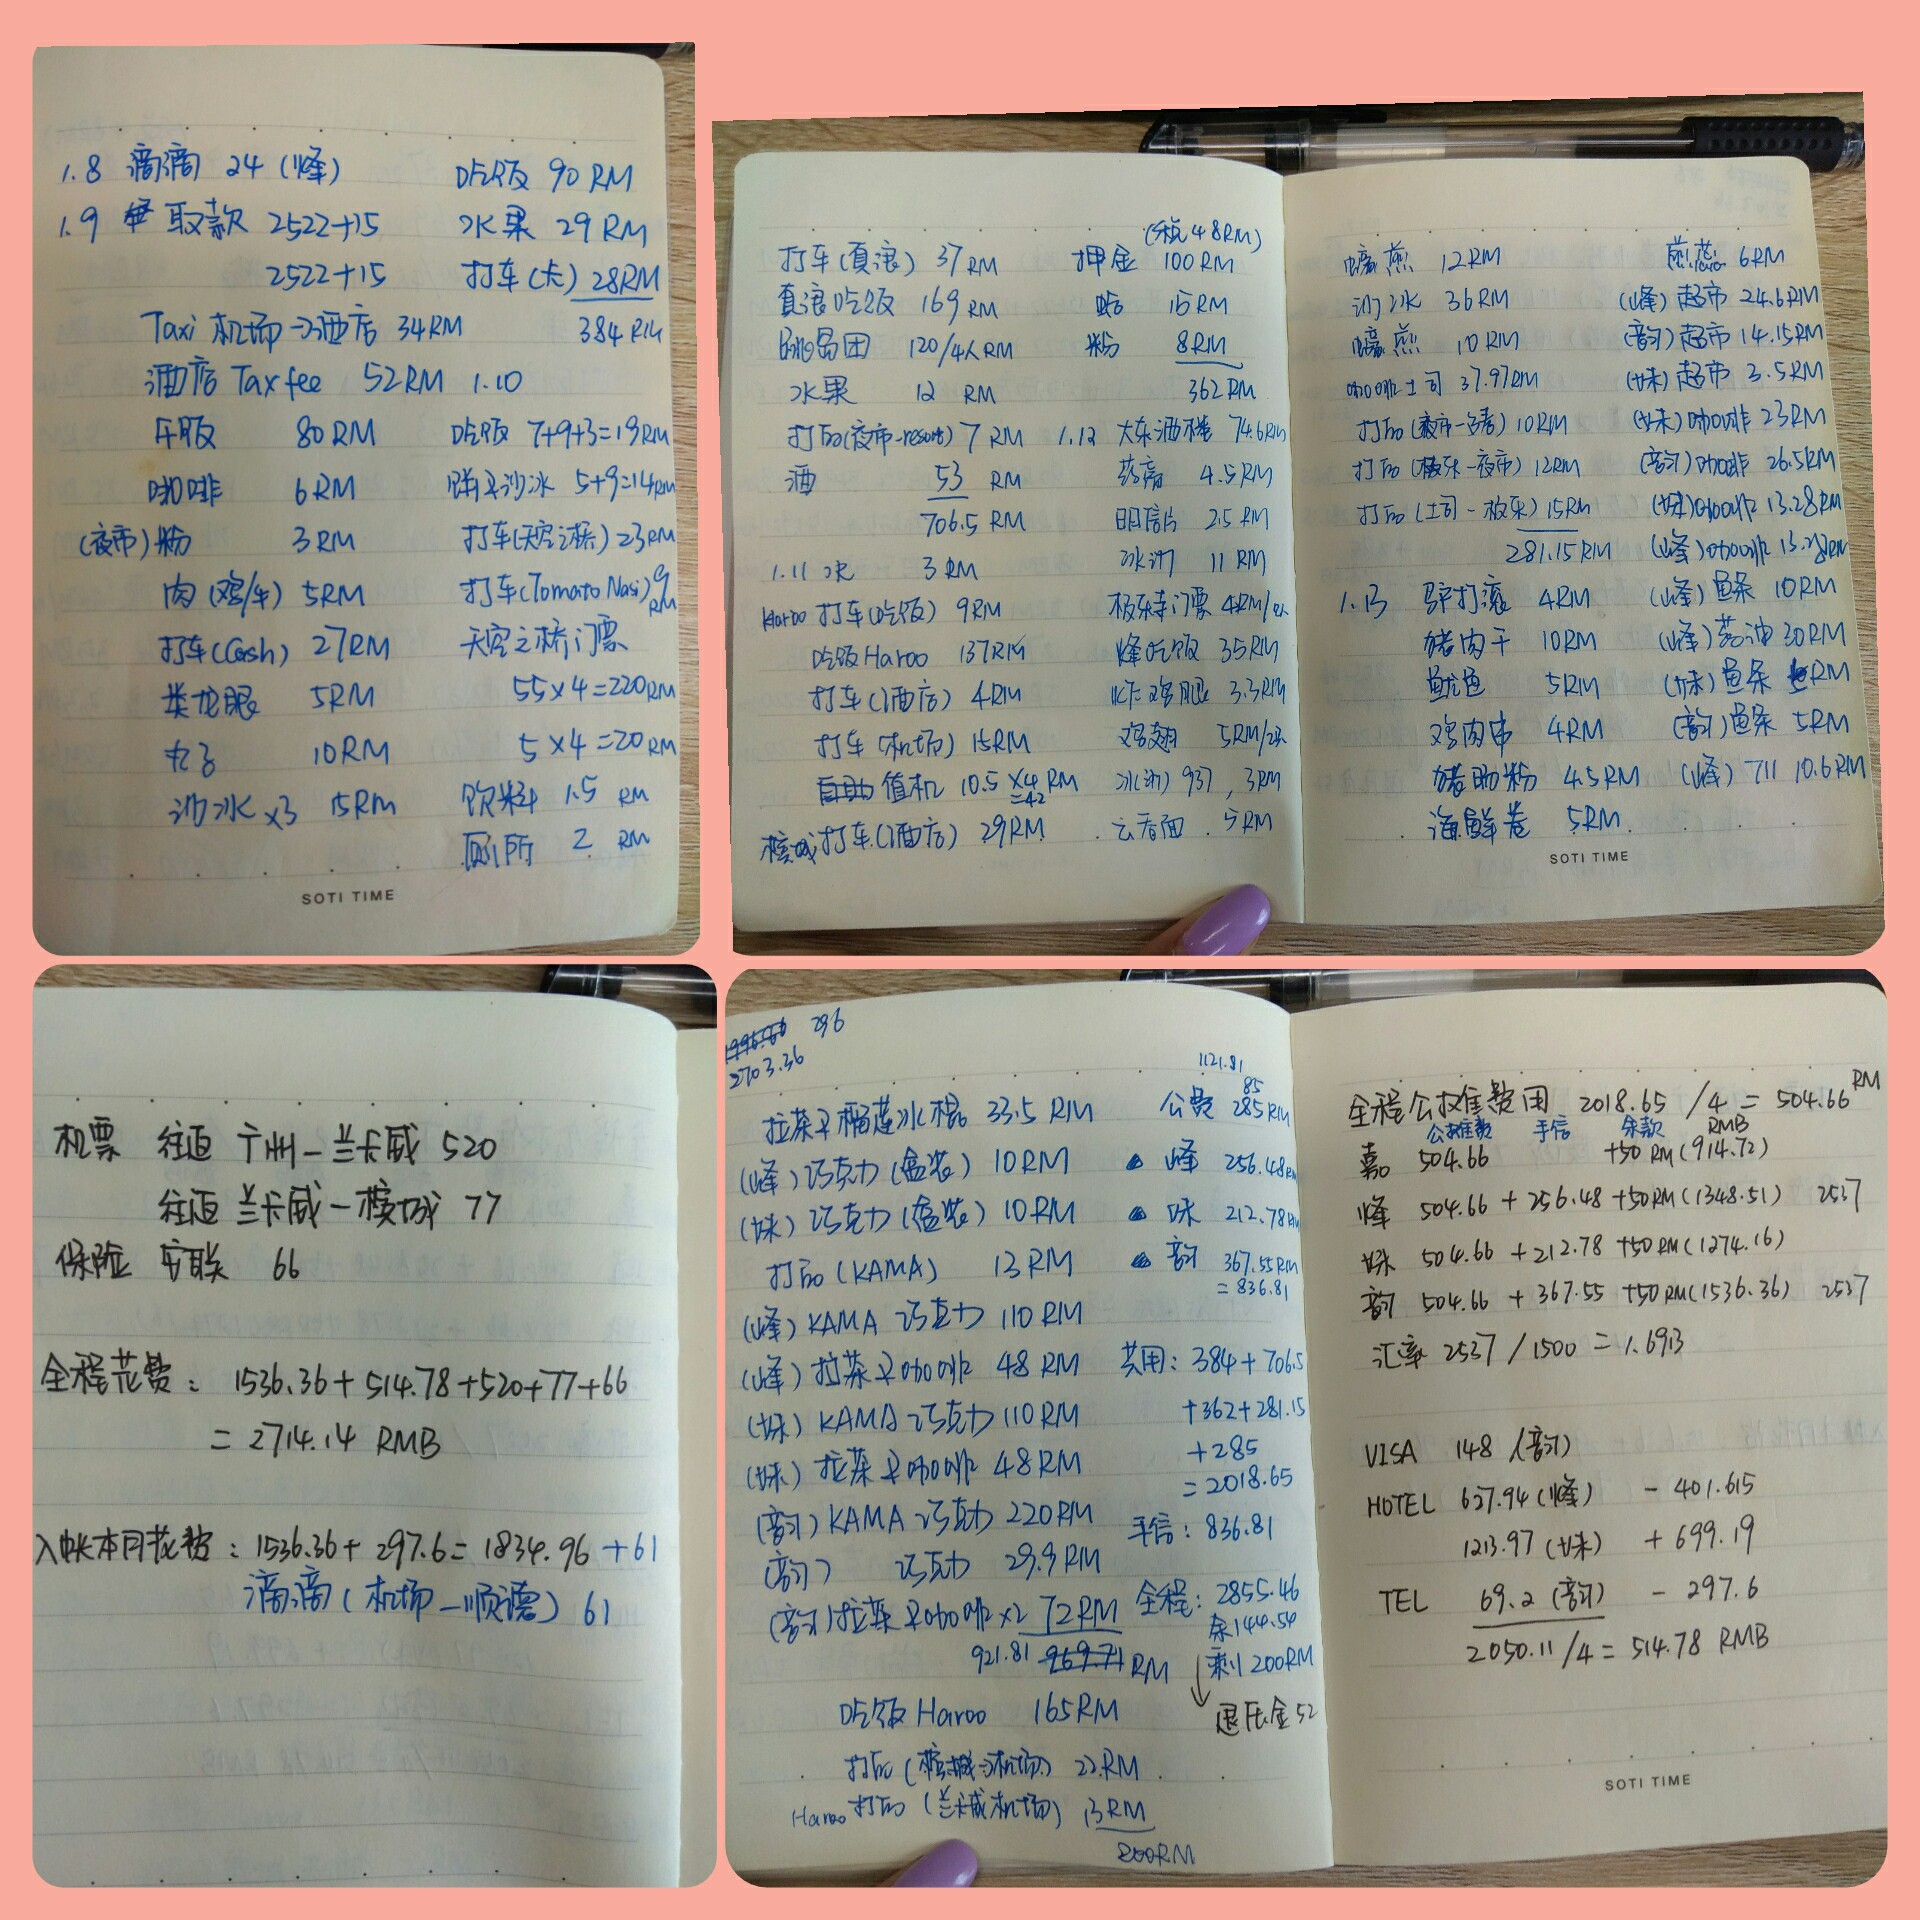 1.8 滴滴 24 (峰)
1.9 取款 2522+15
2522+15
Taxi 机场→酒店 34RM
酒店 Tax fee 52RM
午饭 80RM
咖啡 6RM
(夜市) 粉 3RM
肉(鸡/牛) 5RM
打车(Cash) 27RM
类龙眼 5RM
丸子 10RM
沙冰x3 15RM
吃饭 90RM
水果 29RM
打车(卡) 28RM
384RM
1.10
吃饭 7+9+3=19RM
沙冰 5+9=14RM
打车(天空之桥) 23RM
打车(Tomato Nasi) 9RM
天空之桥门票
55x4=220RM
5x4=20RM
饮料 1.5RM
厕所 2RM
SOTI TIME
打车(真浪) 37RM
真浪吃饭 169RM
跳岛团 120/4人RM
水果 12RM
打的(夜市-resort) 7RM
酒 53RM
706.5RM
1.11 冰 3RM
Haroo 打车(吃饭) 9RM
吃饭Haroo 137RM
打车(酒店) 4RM
打车(机场) 15RM
自助值机 10.5x4RM
=42
槟城打车(酒店) 29RM
(税48RM)
押金 100RM
15RM
粉 8RM
362RM
1.12 大东酒楼 74.6RM
药膏 4.5RM
明信片 2.5RM
冰沙 11RM
极乐寺门票 4RM/2人
峰吃饭 35RM
炸鸡腿 3.3RM
鸡翅 5RM/2只
冰沙 937, 3RM
云吞面 5RM
蠔煎 12RM
沙冰 36RM
蠔煎 10RM
咖啡土司 37.97RM
打的(夜市-) 10RM
打的(极乐-夜市) 12RM
打的(土司-极乐) 15RM
281.15RM
1.13 驴打滚 4RM
猪肉干 10RM
鱿鱼 5RM
鸡肉串 4RM
猪肠粉 4.5RM
海鲜卷 5RM
煎蕊 6RM
(峰)超市 24.6RM
(韵)超市 14.15RM
(妹)超市 3.5RM
(妹)咖啡 23RM
(韵)咖啡 26.5RM
(妹)咖啡 13.28RM
(峰)咖啡 13.28RM
(峰)鱼条 10RM
(峰)药油 30RM
(妹)鱼条 RM
(韵)鱼条 5RM
(峰) 711 10.6RM
SOTI TIME
机票 往返 广州-兰卡威 520
往返 兰卡威-槟城 77
保险 安联 66
全程花费: 1536.36+514.78+520+77+66
=2714.14 RMB
入帐本月花费: 1536.36+297.6=1834.96 +61
滴滴(机场-顺德) 61
296
2703.36
拉茶+榴莲冰棍 33.5RM
(峰)巧克力(盒装) 10RM
(妹)巧克力(盒装) 10RM
打的(KAMA) 13RM
(峰)KAMA巧克力 110RM
(峰)拉茶+咖啡 48RM
(妹)KAMA巧克力 110RM
(妹)拉茶+咖啡 48RM
(韵)KAMA巧克力 220RM
(韵) 巧克力 29.9RM
(韵)拉茶+咖啡x2 72RM
921.81 969.71 RM
吃饭Haroo 165RM
打的(槟城→机场) 22RM
Haroo 打的(兰卡威机场) 13RM
200RM
1121.81
85
公费 285RM
峰 256.48RM
妹 212.78RM
韵 367.55RM
=836.81
共用: 384+706.5
+362+281.15
+285
=2018.65
手信: 836.81
全程: 2855.46
余144.54
剩200RM
退压金52
全程公摊费用 2018.65/4=504.66RM
公摊费 手信 余款 RMB
嘉 504.66 +50RM(914.72)
峰 504.66+256.48+50RM(1348.51) 2537
妹 504.66+212.78+50RM(1274.16)
韵 504.66+367.55+50RM(1536.36) 2537
汇率 2537/1500=1.6913
VISA 148 (韵)
HOTEL 627.94(峰) -401.615
1213.97(妹) +699.19
TEL 69.2(韵) -297.6
2050.11/4=514.78 RMB
SOTI TIME